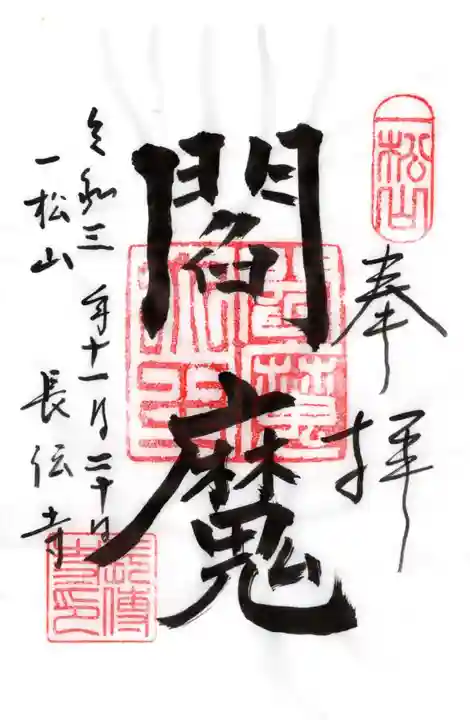 一松山
奉拝
閻魔
令和三年十一月二十日
一松山 長伝寺
長傳寺印